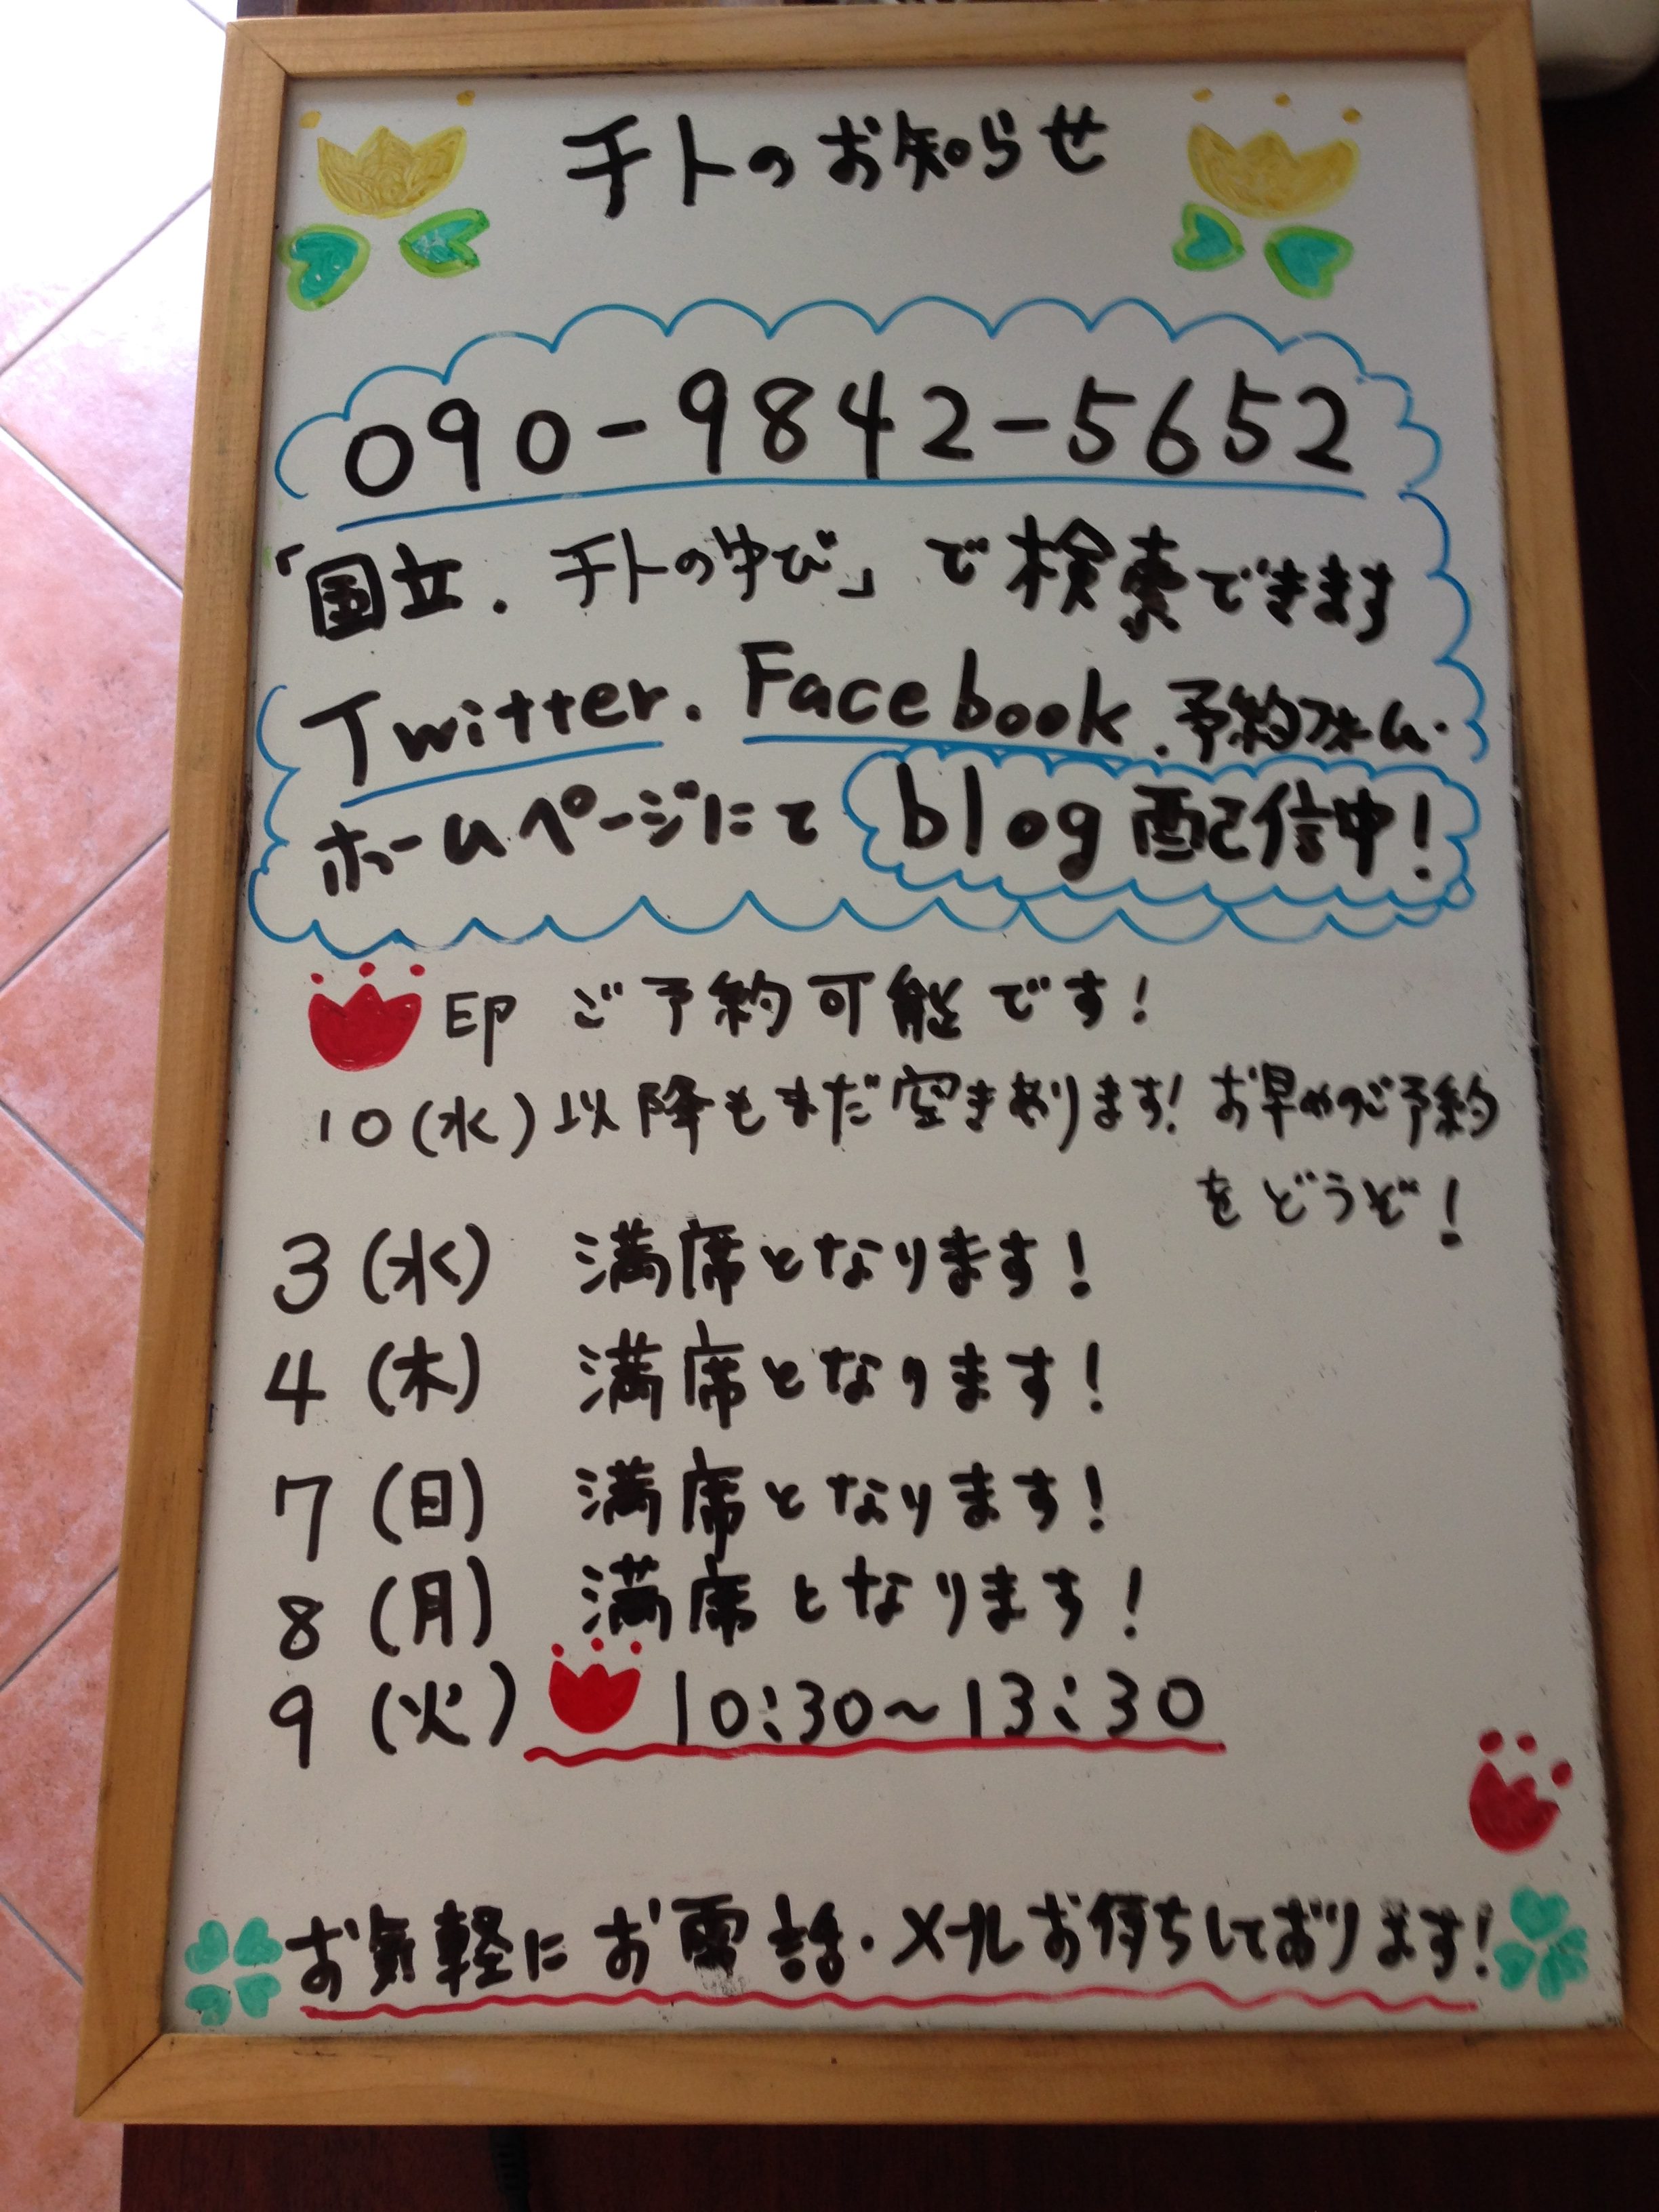 チトのお知らせ
090-9842-5652
「国立．チトのゆび」で検索できます
Twitter．Facebook．予約フォーム．
ホームページにて blog配信中！
印 ご予約可能です！
10(水)以降もまだ空きあります！お早めのご予約
をどうぞ！
3(水) 満席となります！
4(木) 満席となります！
7(日) 満席となります！
8(月) 満席となります！
9(火) 10:30～13:30
お気軽にお電話・メールお待ちしております！